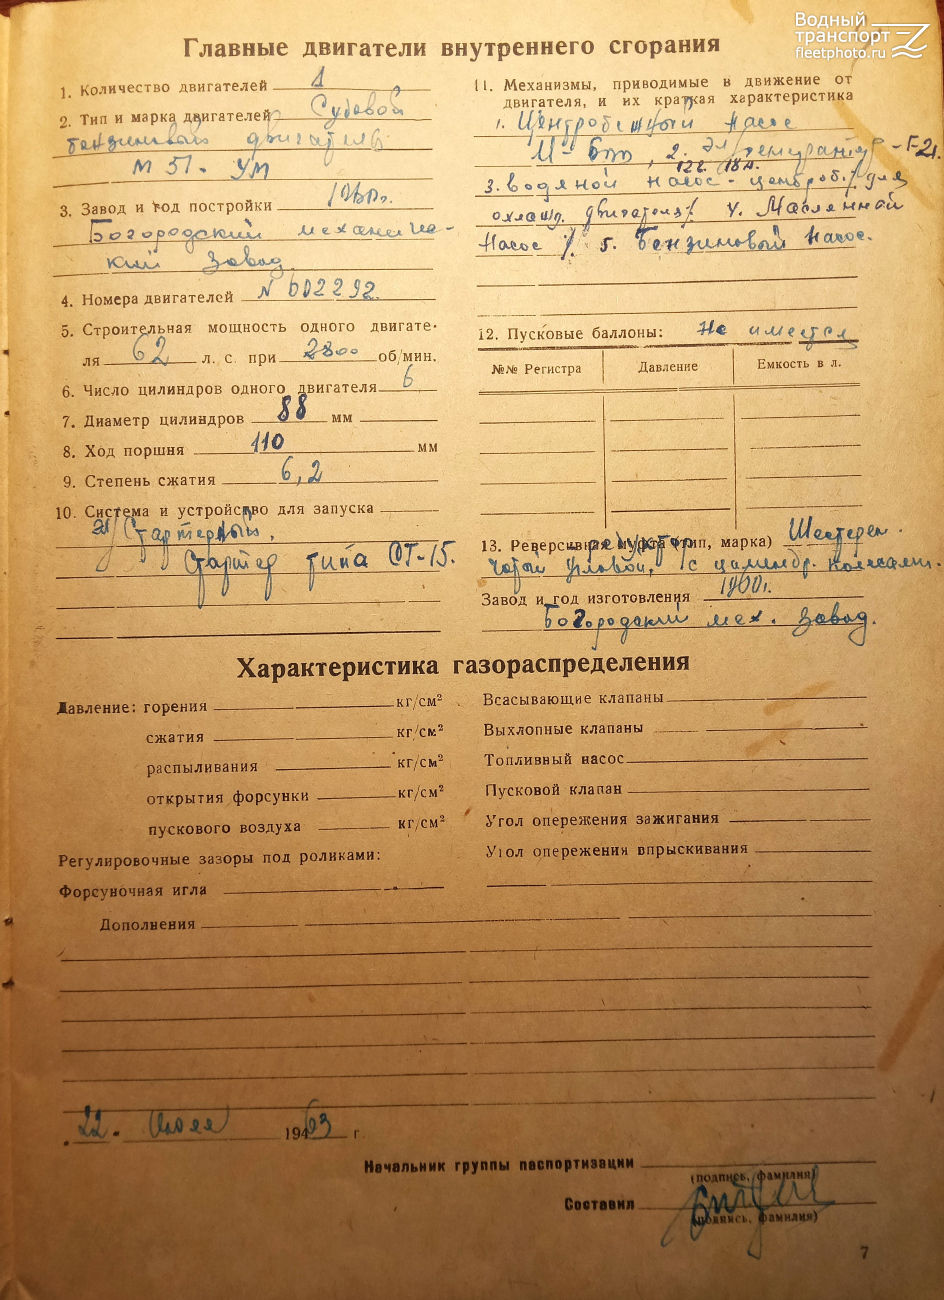 Водный
транспорт
fleetphoto.ru
Главные двигатели внутреннего сгорания
1. Количество двигателей 1
2. Тип и марка двигателей Судовой
бензиновый двигатель
М 51. УМ
3. Завод и год постройки
Богородский механиче-
кий завод
4. Номера двигателей N 602292
5. Строительная мощность одного двигате-
ля 62 л. с. при 2800 об/мин.
6. Число цилиндров одного двигателя 6
7. Диаметр цилиндров 88 мм
8. Ход поршня 110 мм
9. Степень сжатия 6,2
10. Система и устройство для запуска
эл/Стартерный,
Стартер типа СТ-15.
11. Механизмы, приводимые в движение от
двигателя, и их краткая характеристика
1. Центробежный насос
2. Эл/генуратур Г-21.
12 в. 18 А.
3. водяной насос - центроб. / для
охлажд. двигателя/ 4. Масленной
насос /. 5. Бензиновый насос.
12. Пусковые баллоны: Не имеется
№№ Регистра Давление Емкость в л.
13. Реверсивная муфта (тип, марка) Шестерен
редуктор
чатый угловой, с цилиндр. колесами.
Завод и год изготовления 1960г.
Богородский мех. завод.
Характеристика газораспределения
Давление: горения кг/см²
сжатия кг/см²
распыливания кг/см²
открытия форсунки кг/см²
пускового воздуха кг/см²
Регулировочные зазоры под роликами:
Форсуночная игла
Всасывающие клапаны
Выхлопные клапаны
Топливный насос
Пусковой клапан
Угол опережения зажигания
Угол опережения впрыскивания
Дополнения
22. Июля 1963 г.
Начальник группы паспортизации
(подпись, фамилия)
Составил
(подпись, фамилия)
7